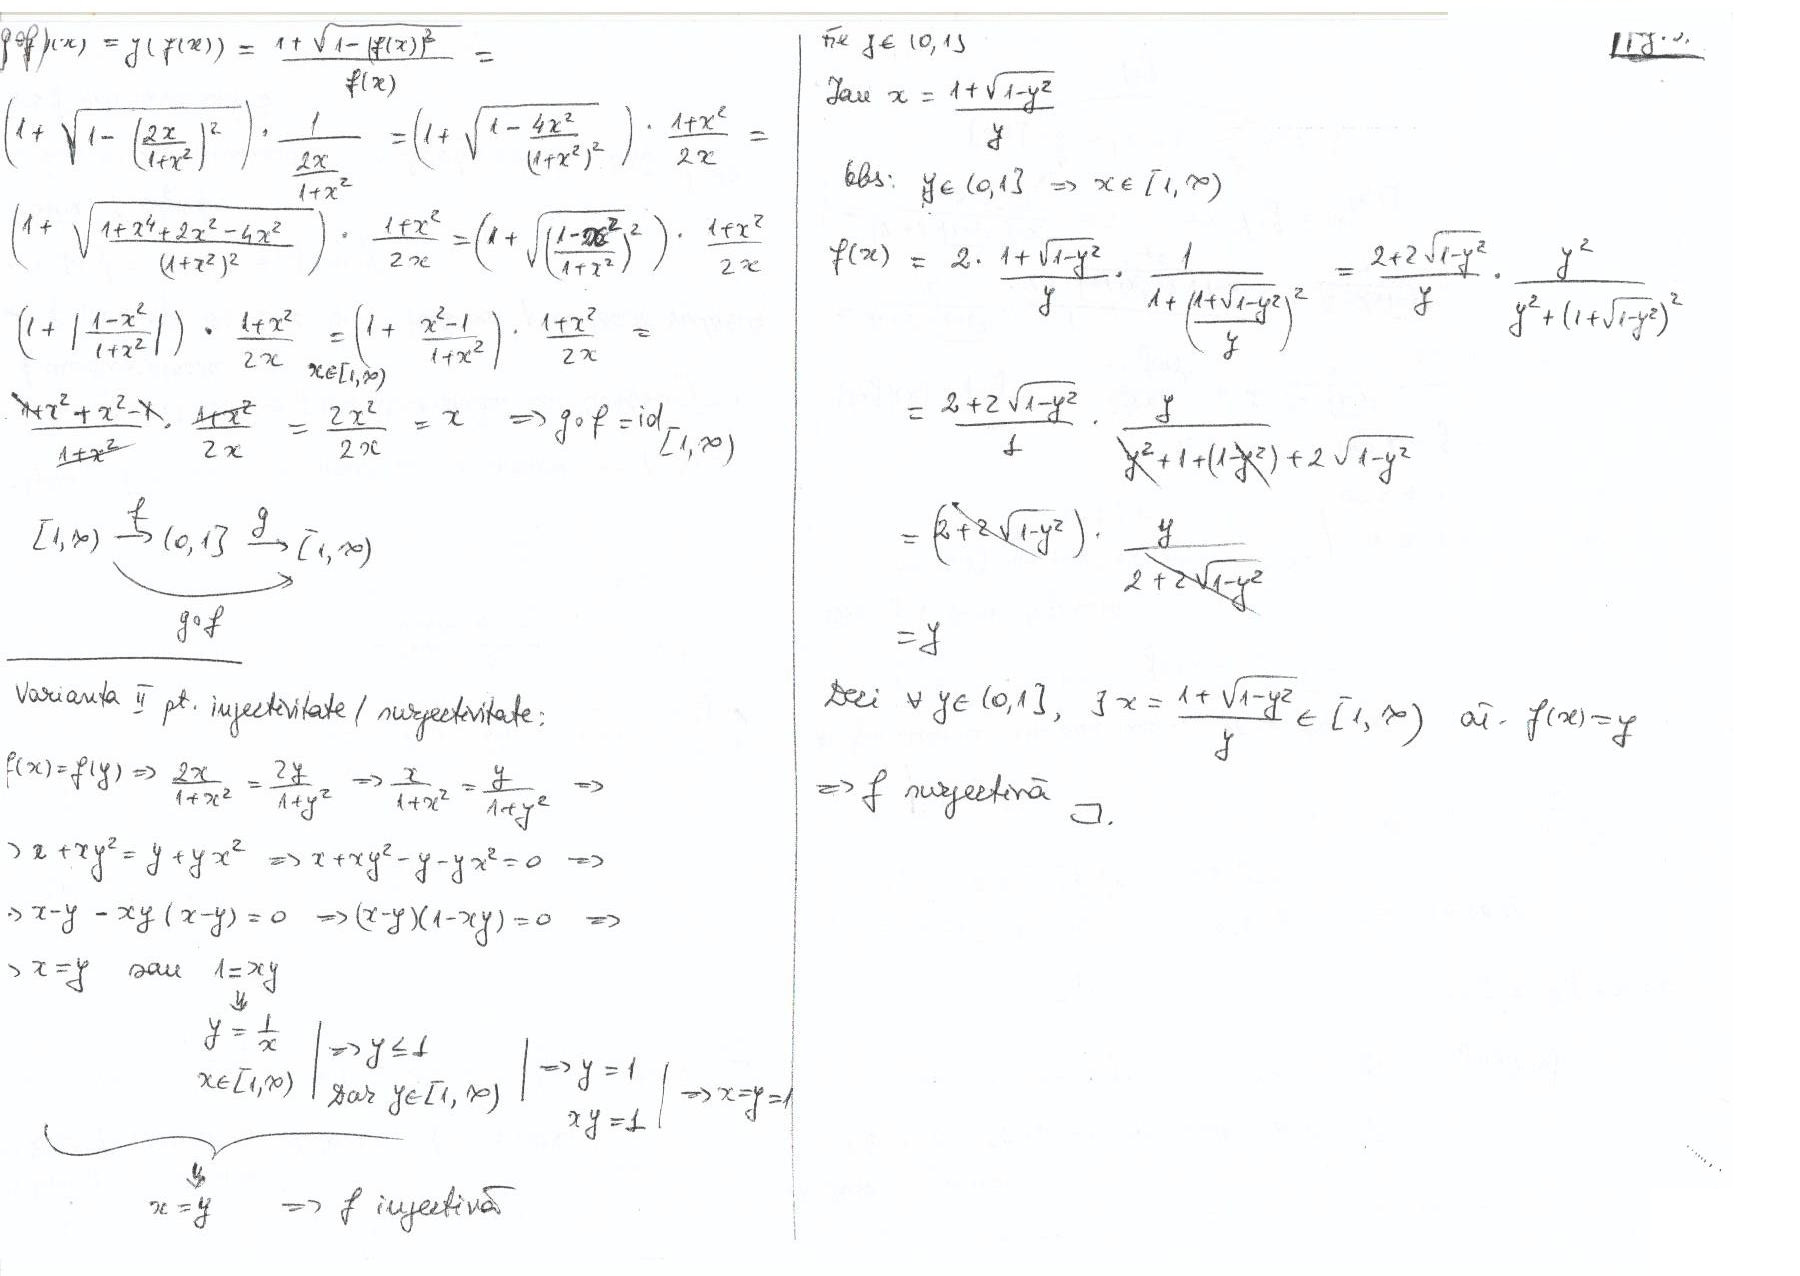 (g∘f)(x) = g(f(x)) = \frac{1+\sqrt{1-(f(x))^2}}{f(x)} =
(1+\sqrt{1-(\frac{2x}{1+x^2})^2}) · \frac{1}{\frac{2x}{1+x^2}} = (1+\sqrt{1-\frac{4x^2}{(1+x^2)^2}}) · \frac{1+x^2}{2x} =
(1+\sqrt{\frac{1+x^4+2x^2-4x^2}{(1+x^2)^2}}) · \frac{1+x^2}{2x} = (1+\sqrt{(\frac{1-x^2}{1+x^2})^2}) · \frac{1+x^2}{2x}
(1+|\frac{1-x^2}{1+x^2}|) · \frac{1+x^2}{2x} =_{x∈[1,∞)} (1+\frac{x^2-1}{1+x^2}) · \frac{1+x^2}{2x} =
\frac{1+x^2+x^2-1}{1+x^2} · \frac{1+x^2}{2x} = \frac{2x^2}{2x} = x => g∘f = id_{[1,∞)}
[1,∞) \xrightarrow{f} (0,1] \xrightarrow{g} [1,∞)
g∘f
Varianta II pt. injectivitate / surjectivitate:
f(x)=f(y) => \frac{2x}{1+x^2} = \frac{2y}{1+y^2} => \frac{x}{1+x^2} = \frac{y}{1+y^2} =>
=> x+xy^2 = y+yx^2 => x+xy^2-y-yx^2=0 =>
=> x-y -xy(x-y)=0 => (x-y)(1-xy)=0 =>
=> x=y sau 1=xy
⇓
y = \frac{1}{x} | => y≤1 | => y=1 | => x=y=1
x∈[1,∞) | Dar y∈[1,∞) | xy=1 |
⇓
x=y => f injectivă
Fie y∈(0,1]
Iau x = \frac{1+\sqrt{1-y^2}}{y}
Obs: y∈(0,1] => x∈[1,∞)
f(x) = 2· \frac{1+\sqrt{1-y^2}}{y} · \frac{1}{1+(\frac{1+\sqrt{1-y^2}}{y})^2} = \frac{2+2\sqrt{1-y^2}}{y} · \frac{y^2}{y^2+(1+\sqrt{1-y^2})^2}
= \frac{2+2\sqrt{1-y^2}}{1} · \frac{y}{y^2+1+(1-y^2)+2\sqrt{1-y^2}}
= (2+2\sqrt{1-y^2}) · \frac{y}{2+2\sqrt{1-y^2}}
= y
Deci ∀ y∈(0,1], ∃ x = \frac{1+\sqrt{1-y^2}}{y} ∈ [1,∞) aî. f(x)=y
=> f surjectivă □.